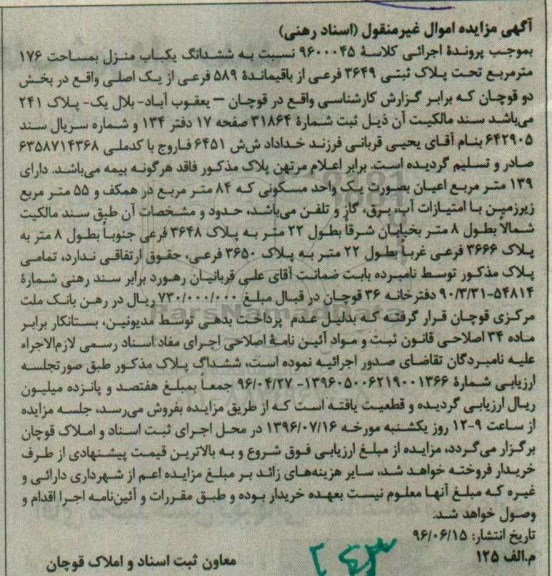 آگهی مزایده اموال غیرمنقول (اسناد رهنی)
بموجب پروندهٔ اجرائی کلاسهٔ ۹۶۰۰۰۴۵ نسبت به ششدانگ یکباب منزل بمساحت ۱۷۶
مترمربع تحت پلاک ثبتی ۳۶۴۹ فرعی از باقیماندهٔ ۵۸۹ فرعی از یک اصلی واقع در بخش
دو قوچان که برابر گزارش کارشناسی واقع در قوچان – یعقوب آباد- بلال یک- پلاک ۲۴۱
می‌باشد سند مالکیت آن ذیل ثبت شمارهٔ ۳۱۸۶۴ صفحه ۱۷ دفتر ۱۳۴ و شماره سریال سند
۶۴۲۹۰۵ بنام آقای یحیی قربانی فرزند خداداد ش‌ش ۶۴۵۱ فاروج با کدملی ۶۳۵۸۷۱۴۳۶۸
صادر و تسلیم گردیده است. برابر اعلام مرتهن پلاک مذکور فاقد هرگونه بیمه می‌باشد. دارای
۱۳۹ متر مربع اعیان بصورت یک واحد مسکونی که ۸۴ متر مربع در همکف و ۵۵ متر مربع
زیرزمین با امتیازات آب، برق، گاز و تلفن می‌باشد، حدود و مشخصات آن طبق سند مالکیت
شمالا بطول ۸ متر بخیابان شرقاً بطول ۲۲ متر به پلاک ۳۶۴۸ فرعی جنوباً بطول ۸ متر به
پلاک ۳۶۶۶ فرعی غرباً بطول ۲۲ متر به پلاک ۳۶۵۰ فرعی، حقوق ارتفاقی ندارد، تمامی
پلاک مذکور توسط نامبرده بابت ضمانت آقای علی قربانیان رهورد برابر سند رهنی شمارهٔ
۵۴۸۱۴-۹۰/۳/۳۱ دفترخانه ۳۶ قوچان در قبال مبلغ ۷۳۰/۰۰۰/۰۰۰ ریال در رهن بانک ملت
مرکزی قوچان قرار گرفته که بدلیل عدم پرداخت بدهی توسط مدیونین، بستانکار برابر
ماده ۳۴ اصلاحی قانون ثبت و مواد آئین نامهٔ اصلاحی اجرای مفاد اسناد رسمی لازم‌الاجراء
علیه نامبردگان تقاضای صدور اجرائیه نموده است، ششدانگ پلاک مذکور طبق صورتجلسه
ارزیابی شمارهٔ ۱۳۹۶۰۵۰۰۶۲۱۹۰۰۱۳۶۶- ۹۶/۰۴/۲۷ جمعاً بمبلغ هفتصد و پانزده میلیون
ریال ارزیابی گردیده و قطعیت یافته است که از طریق مزایده بفروش می‌رسد، جلسه مزایده
از ساعت ۹-۱۲ روز یکشنبه مورخه ۱۳۹۶/۰۷/۱۶ در محل اجرای ثبت اسناد و املاک قوچان
برگزار می‌گردد، مزایده از مبلغ ارزیابی فوق شروع و به بالاترین قیمت پیشنهادی از طرف
خریدار فروخته خواهد شد، سایر هزینه‌های زائد بر مبلغ مزایده اعم از شهرداری دارائی و
غیره که مبلغ آنها معلوم نیست بعهده خریدار بوده و طبق مقررات و آئین‌نامه اجرا اقدام و
وصول خواهد شد.
تاریخ انتشار: ۹۶/۰۶/۱۵
م.الف ۱۲۵
معاون ثبت اسناد و املاک قوچان